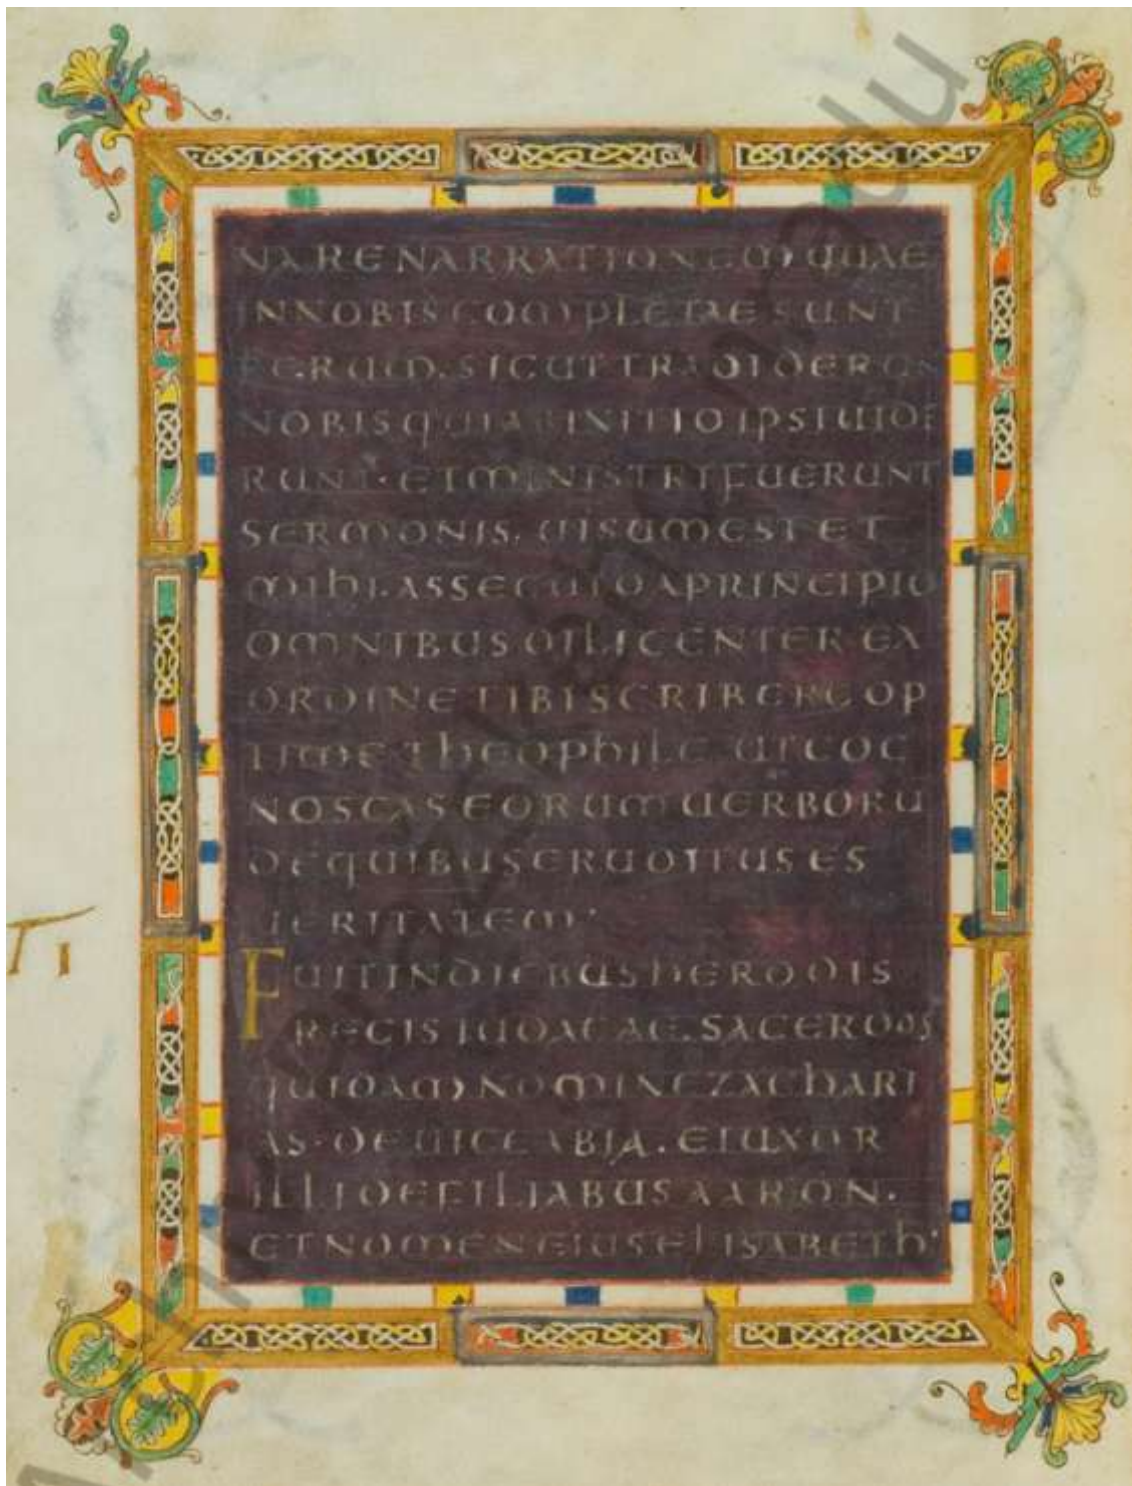 NARE NARRATIONEM QUAE
IN NOBIS COMPLETAE SUNT
RERUM. SICUT TRADIDERUN
NOBIS QUI AB INITIO IPSI UIDE
RUNT. ET MINISTRI FUERUNT
SERMONIS. UISUM EST ET
MIHI. ASSECUTO A PRINCIPIO
OMNIBUS DILIGENTER EX
ORDINE TIBI SCRIBERE OP
TIME THEOPHILE UT COG
NOSCAS EORUM UERBORU
DE QUIBUS ERUDITUS ES
UERITATEM.
TI
FUIT IN DIEBUS HERODIS
REGIS IUDAEAE. SACERDOS
QUIDAM NOMINE ZACHARI
AS. DE UICE ABIA. ET UXOR
ILLI DE FILIABUS AARON.
ET NOMEN EIUS ELISABETH.